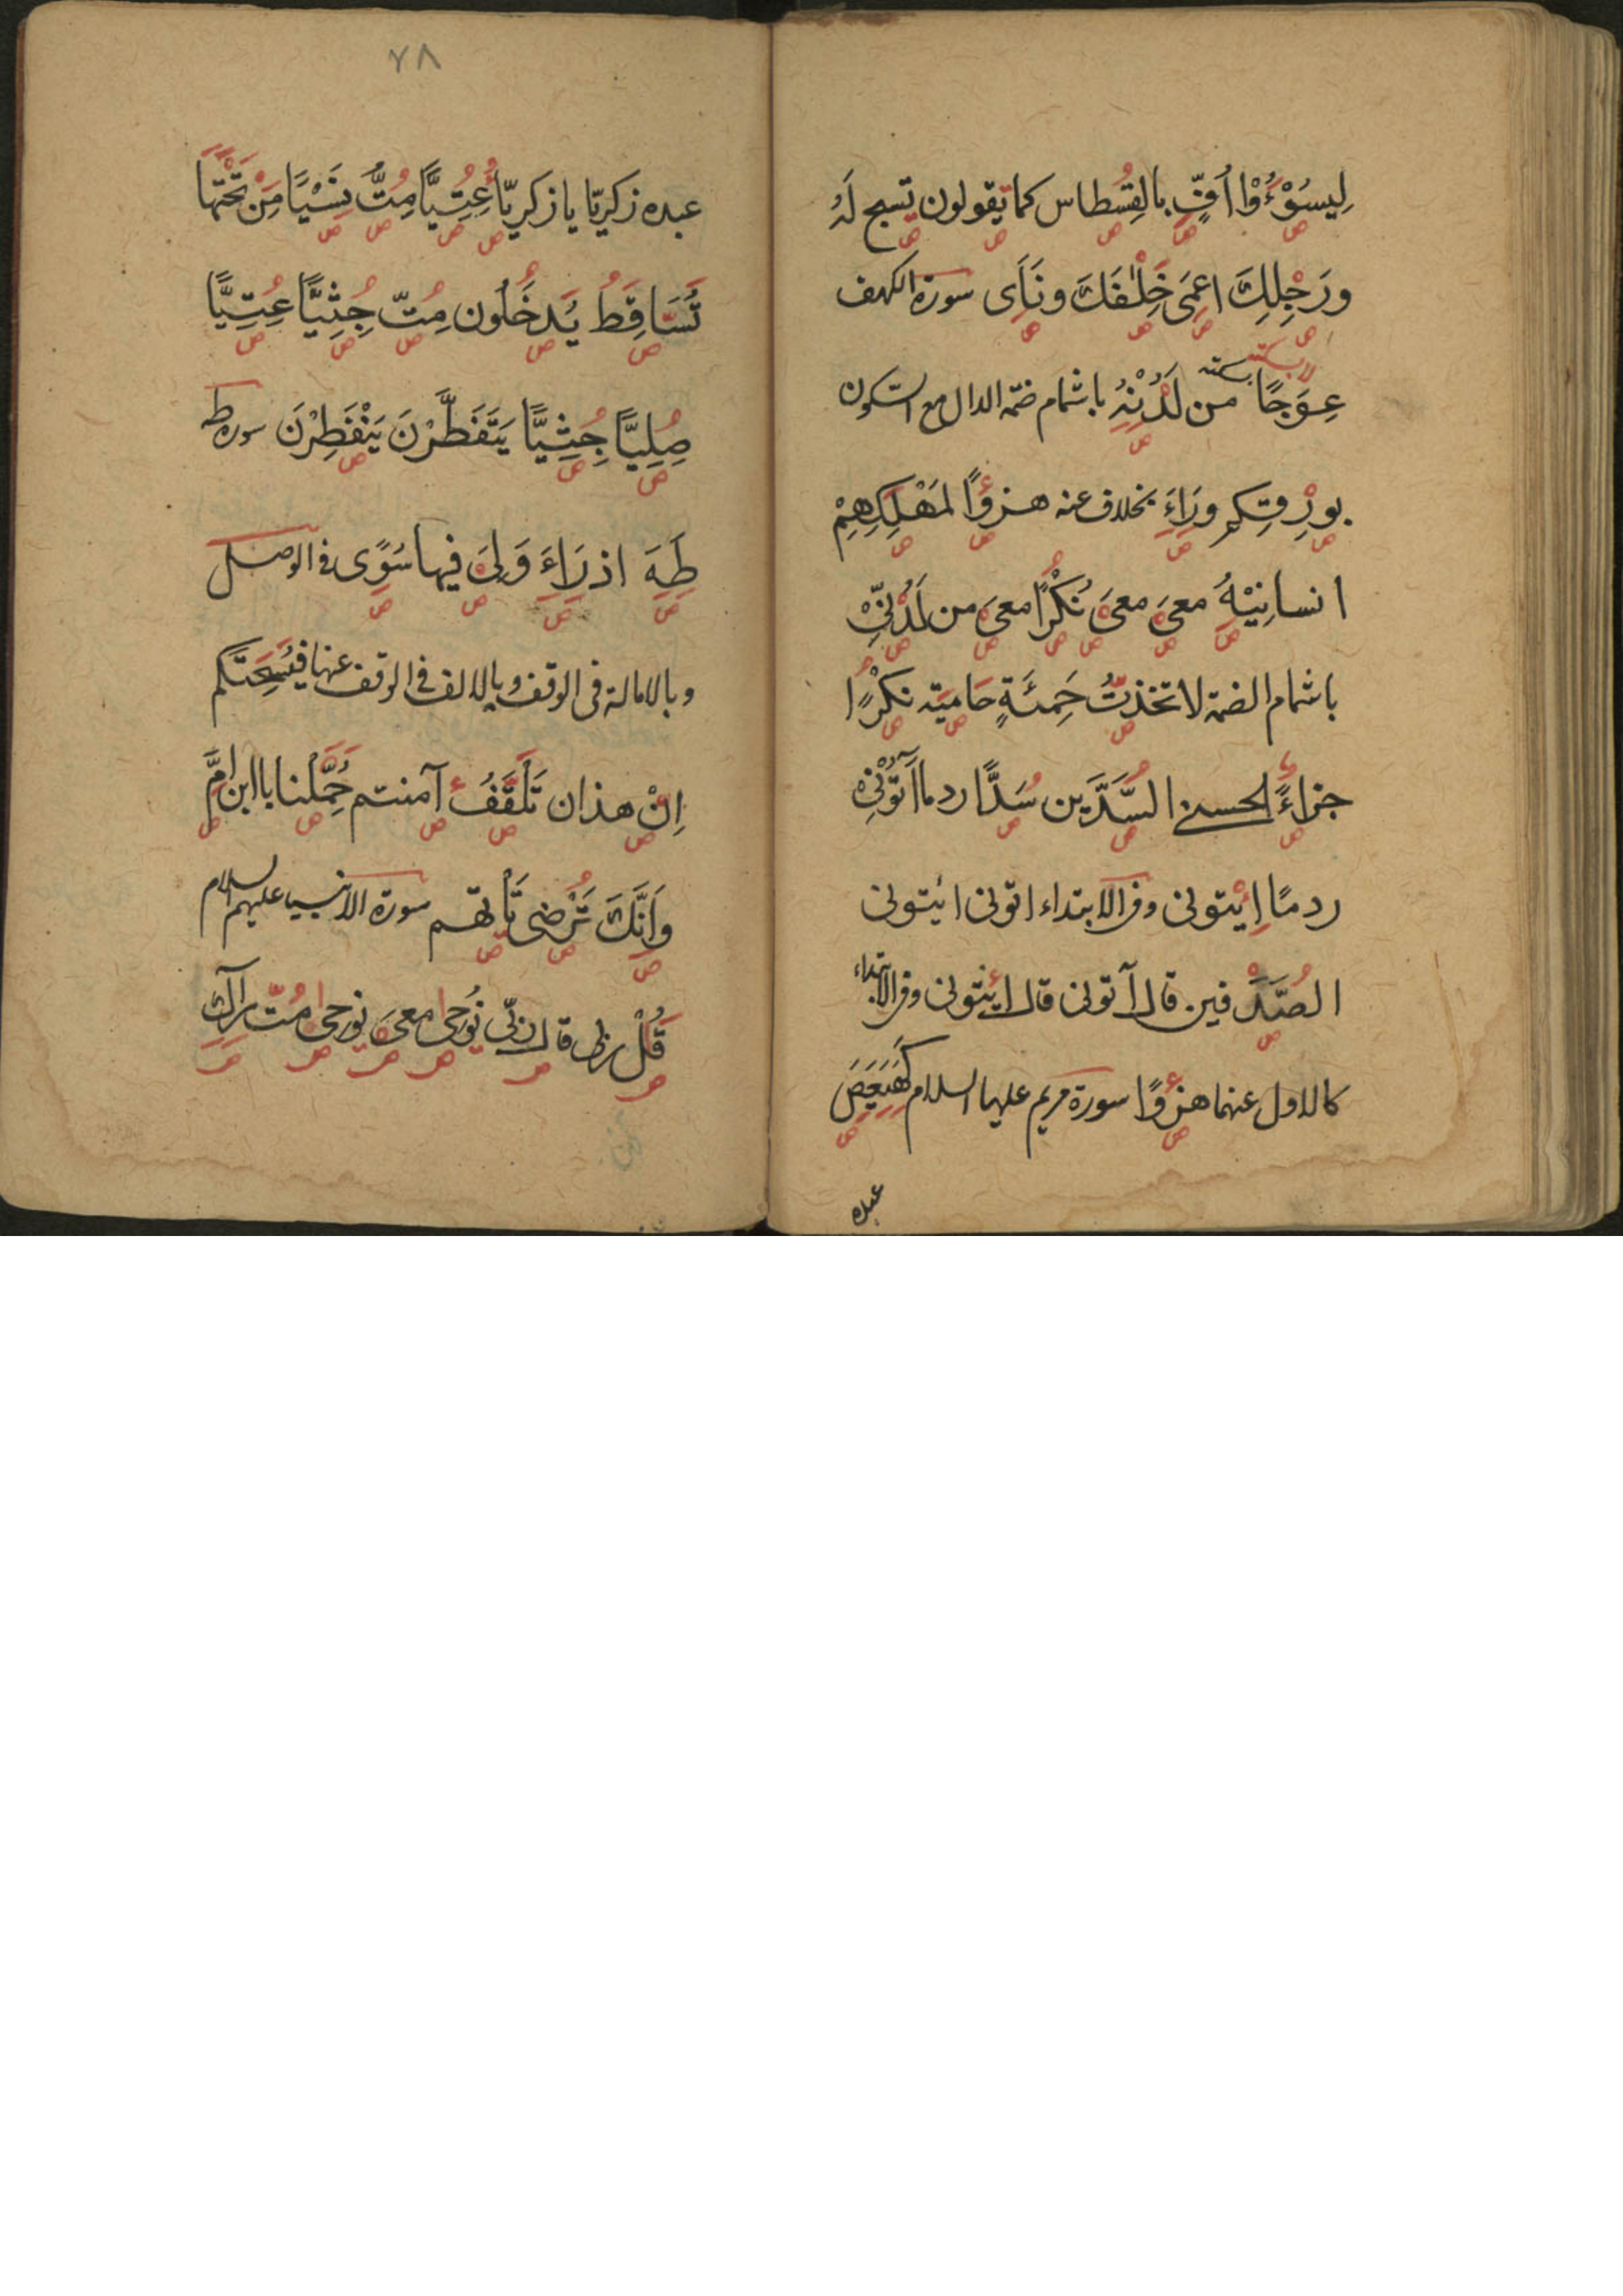 لِيَسُوْءُوْا اُفٍّ بالقسطاس كما يقولون تسبح لَهُ
ورَجِلِكَ اعمى خِلٰفَكَ ونَاَى سورة الكهف
عِوَجًا سكته من لَدُنْهُ باشمام ضمة الدال مع السكون
بورقكم ورَاءَ بخلاف عنه هزؤًا لمَهْلِكِهِمْ
انسانِيْهُ معىَ معىَ نُكْرًا معىَ من لَدُنِّى
باشمام الضمة لاتخذتُ حَمِئَةٍ حامية نكرًا
جزاءً الحسنى السَّدَّين سَدًّا ردما آتُوْنِى
ردمًا اِئْتونى وفى الابتداء اتونى ائيتونى
الصدفين قال آتونى قال ائتونى وفى الابتداء
كالاول عنهما هزؤًا سورة مريم عليها السلام كهيعص
عبده
٧٨
عبده زكريّا يا زكريّا عِتِيًّا مِتُّ نَسْيًا مِنْ تَحْتِهَا
تُسَاقِطُ يَدخُلون مِتّ جِثِيًّا عِتِيًّا
صِلِيًّا جِثِيًّا يَتَفَطَّرْنَ يَنْفَطِرْنَ سورة طه
طَهَ اذ رَاءَ وَلِىَ فيها سُوًى فى الوصل
وبالامالة فى الوقف وبالالف فى الوقف عنها فيُسْحِتَكم
اِنْ هذان تَلَقَّفُ آمنتم حُمِّلْنا يا ابن امَّ
وَاَنَّكَ تَرْضى تأتهم سورة الانبياء عليهم السلام
قُلْ ربى قال ربّى نُوحى معىَ نوحى مُتّ رآك